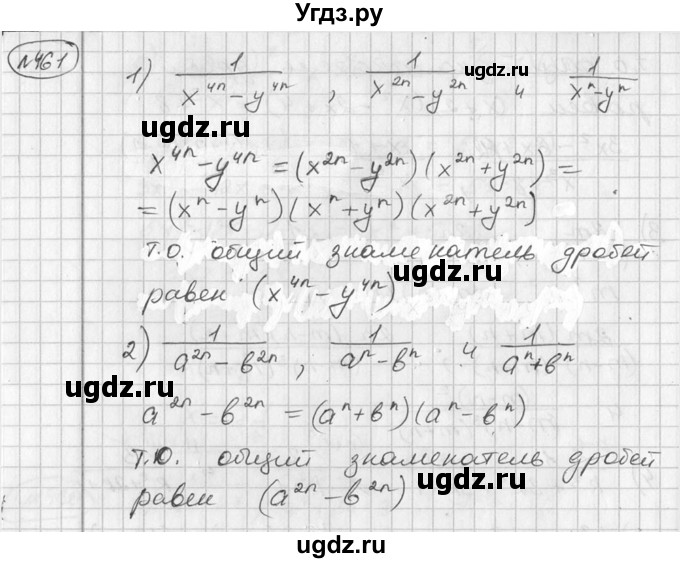 Угдз.ру
№461
1) 1/(x^4n − y^4n) , 1/(x^2n − y^2n) и 1/(x^n − y^n)
x^4n − y^4n = (x^2n − y^2n)(x^2n + y^2n) =
= (x^n − y^n)(x^n + y^n)(x^2n + y^2n)
т.о. общий знаменатель дробей
равен (x^4n − y^4n)
2) 1/(a^2n − b^2n) , 1/(a^n − b^n) и 1/(a^n + b^n)
a^2n − b^2n = (a^n + b^n)(a^n − b^n)
Т.О. общий знаменатель дробей
равен (a^2n − b^2n)
ugdz.ru
ugdz.ru
ugdz.ru
ugdz.ru
ugdz.ru
ugdz.ru
ugdz.ru
ugdz.ru